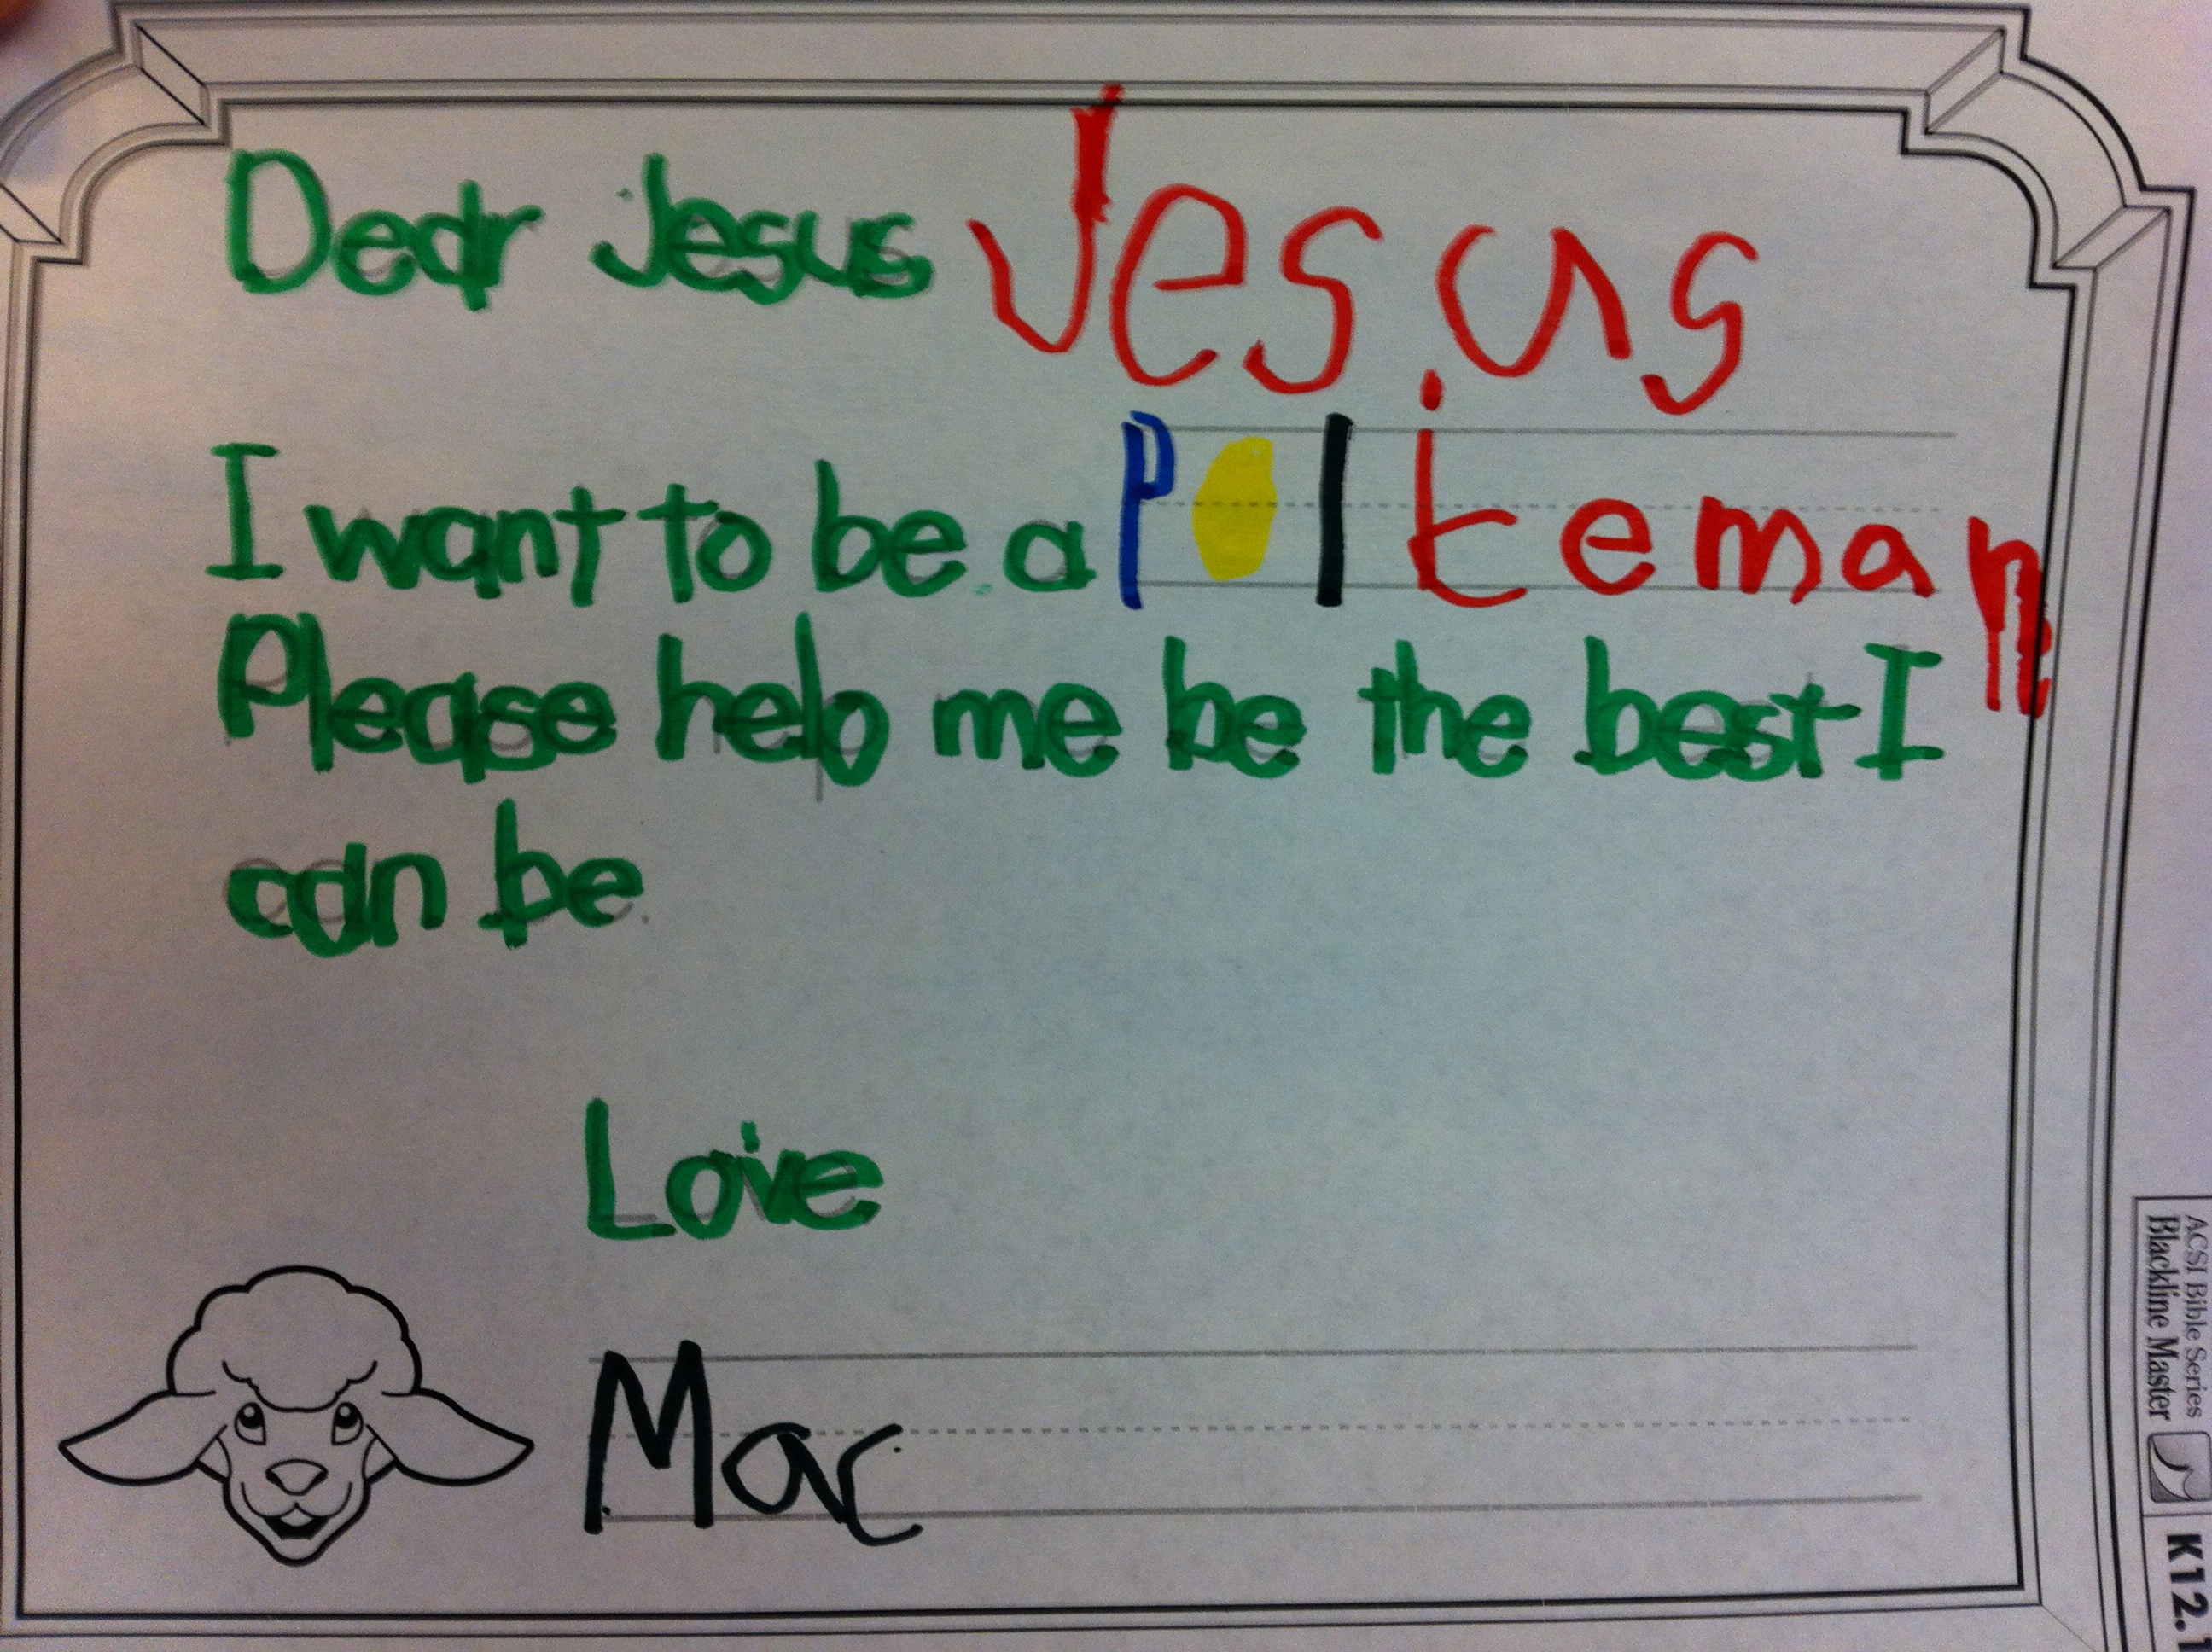 Dear Jesus Jesus
I want to be a Policeman
Please help me be the best I
can be.
Love
Mac
ACSI Bible Series
Blackline Master
K12.1